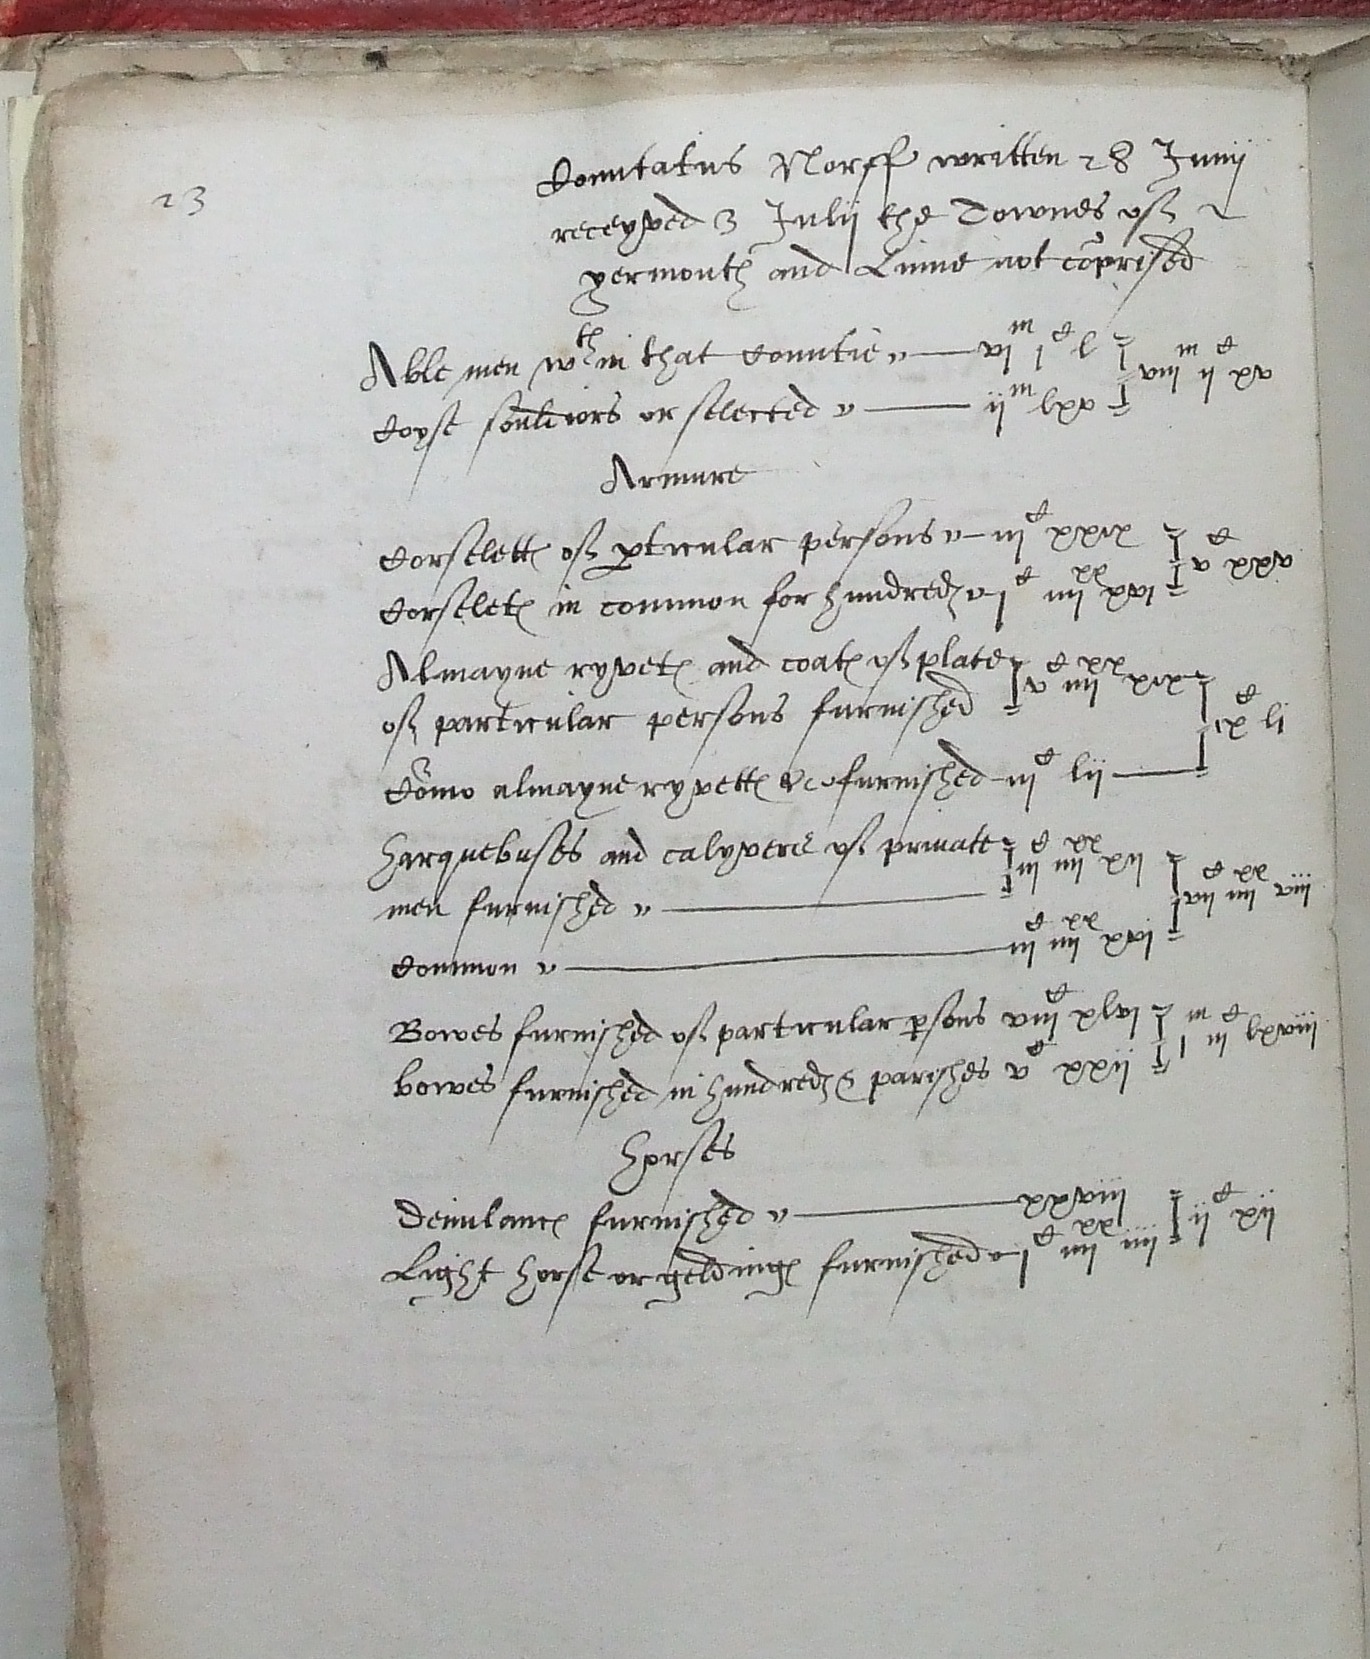 23
Comitatus Norff written 28 Junij
receyved 3 Julij the Townes of
yermouth and Linne not cõprised
Able men wᵗʰin that Countie — viᵐ jᶜ l
viijᵐ ijᶜ xv
Coyse souldiors or selected — ijᵐ lxv
Armure
Corslettes of particular persons — iijᶜ xxix
vᶜ xxv
Corsletes in common for hundredes jᶜ iiijˣˣ xvi
Almayne ryvetes and coates of plate
of particular persons furnished vᶜ iiijˣˣ xix
ixᶜ lj
Cõmo almayne ryvettes &c furnished iijᶜ lij
Harquebuses and calyvers of private
men furnished — iijᶜ iiijˣˣ xij
vijᶜ iiijˣˣ viij
Common — iijᶜ iiijˣˣ xvi
Bowes furnished of particular psons viijᶜ xlvi
jᵐ iijᶜ lxviij
bowes furnished in hundredes & parishes vᶜ xxij
Horses
Demilances furnished — xxviij
ijᶜ xij
Light horse or geldinges furnished jᶜ iiijˣˣ iiij